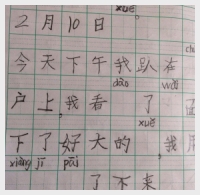 xuě
。
2月10日
今天下午我趴在
dào wài
户上,我看 了
xuě
下了好大的 ,我
xiàng jī pāi
了不来